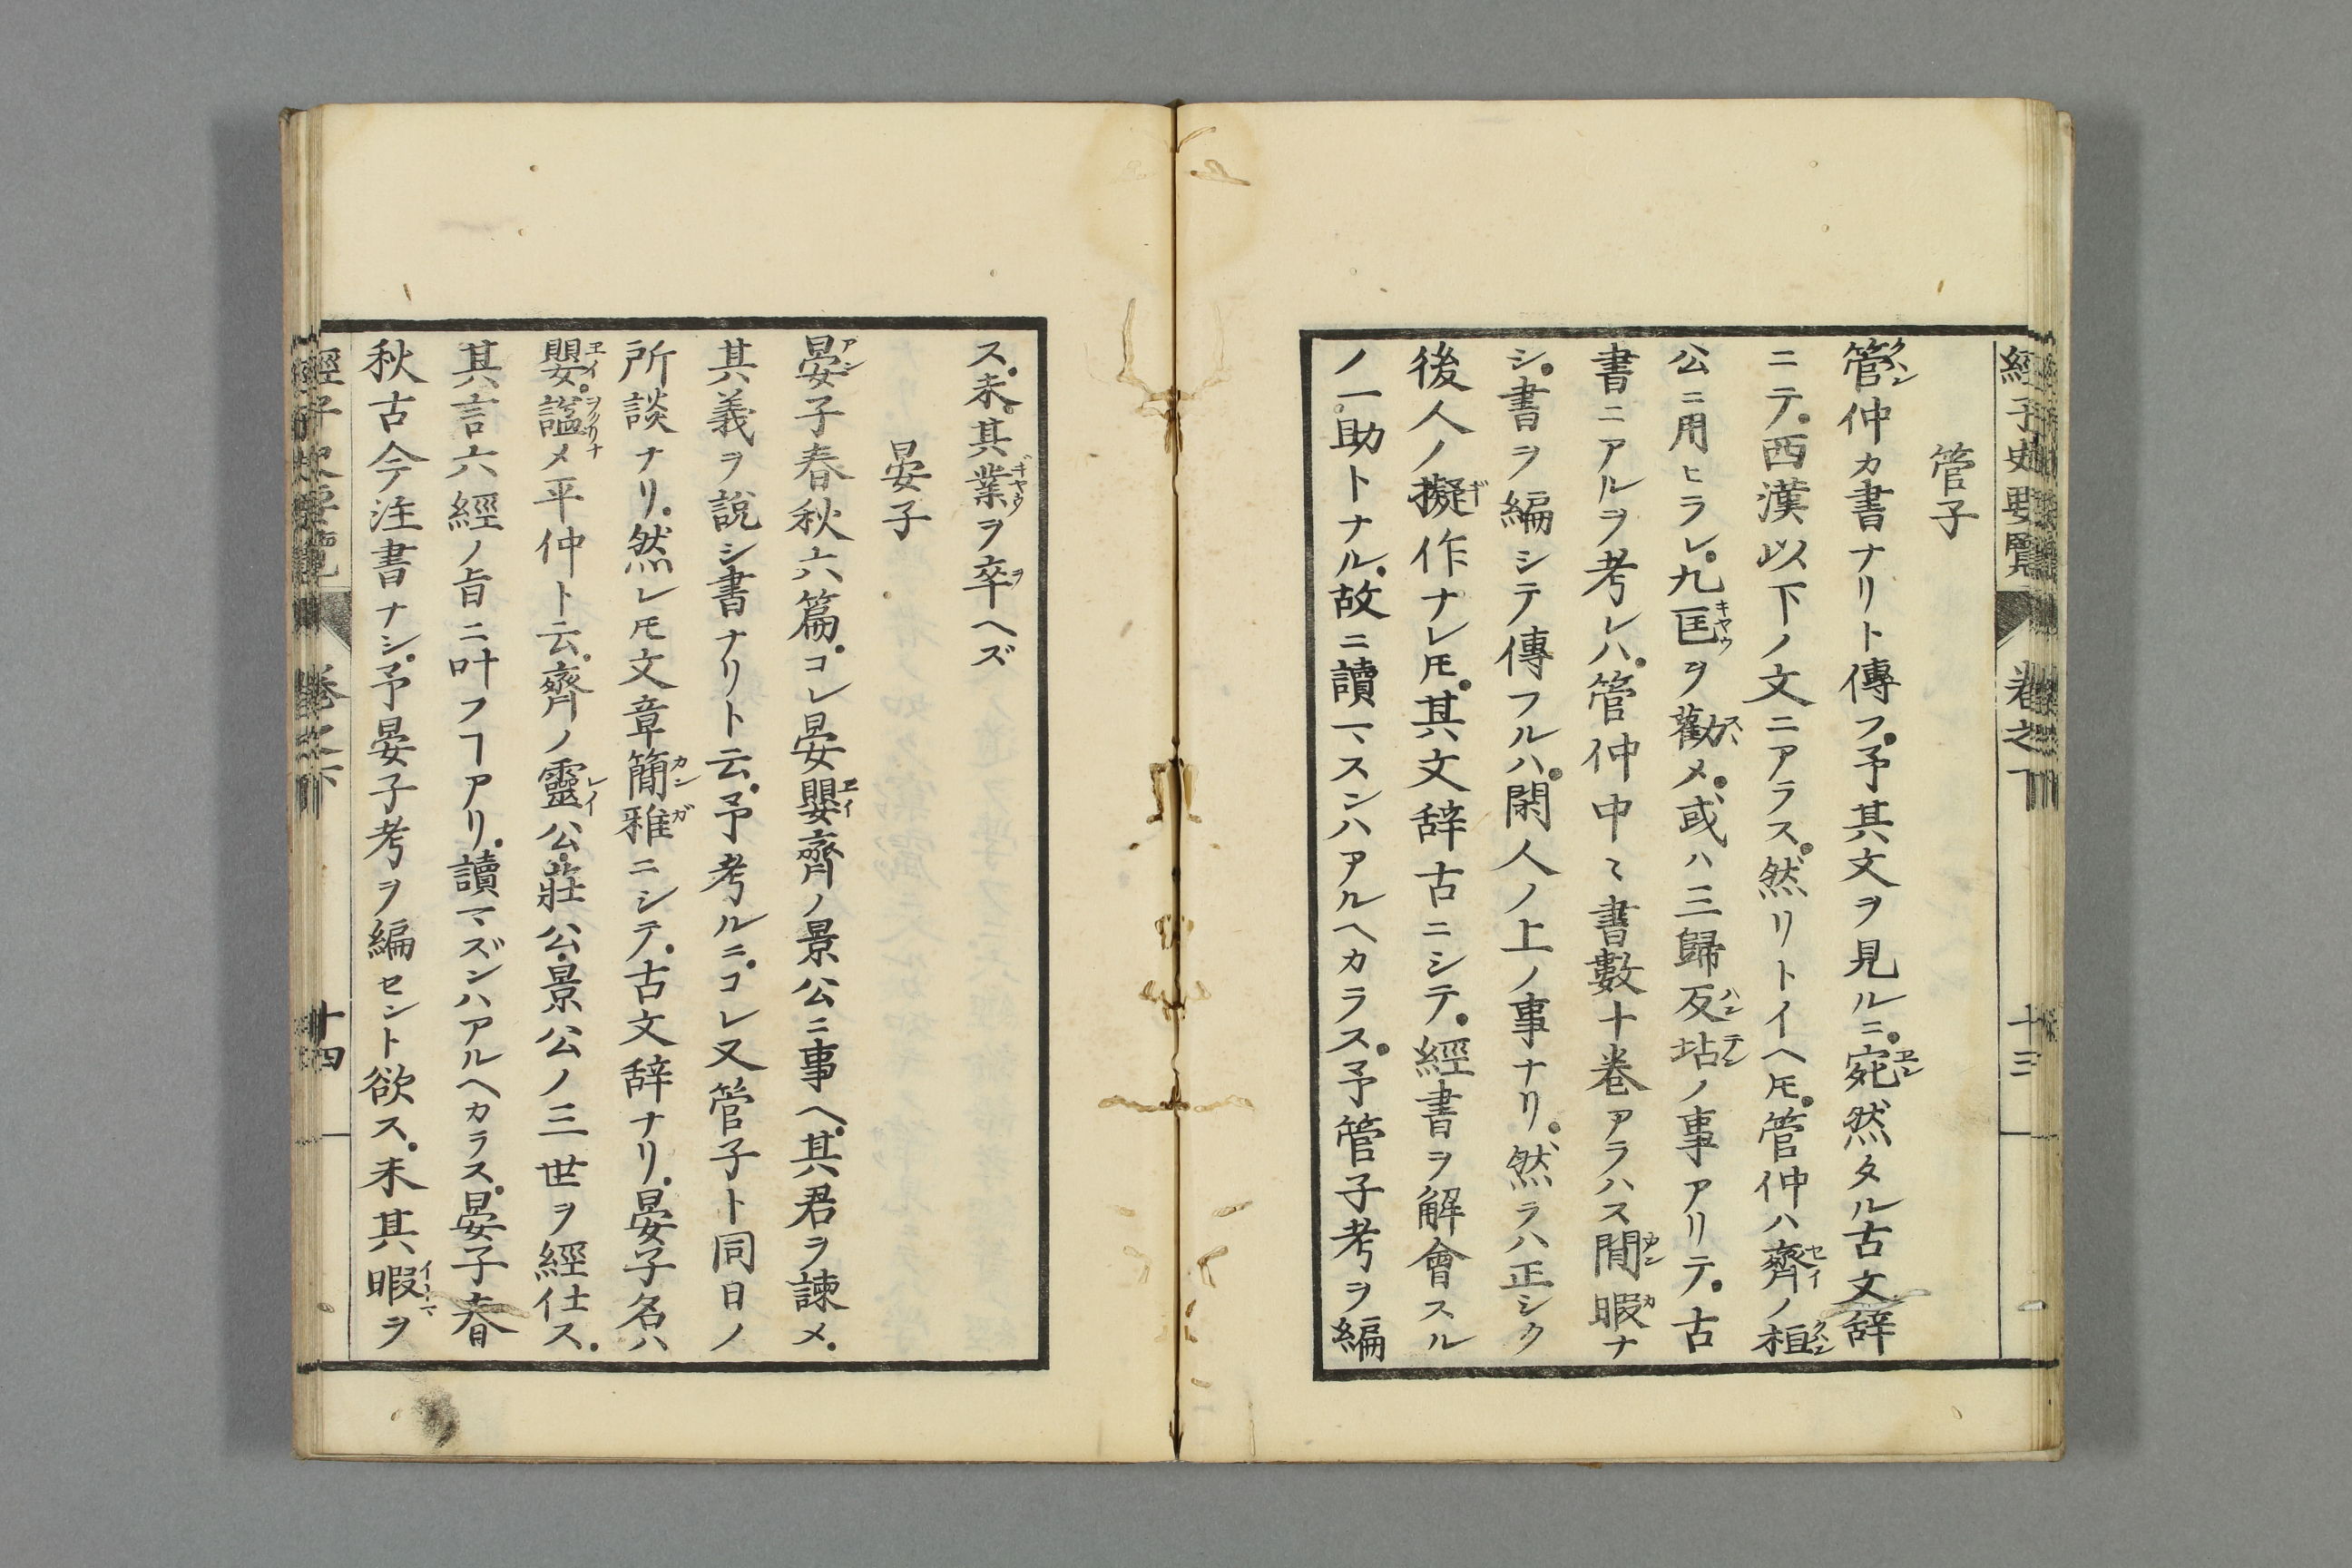 經子史要覽 卷之下 十三
管子
管仲カ書ナリト傳フ。予其文ヲ見ルニ。宛然タル古文辞
ニテ。西漢以下ノ文ニアラス。然リトイヘ𪜈。管仲ハ齊ノ桓
公ニ用ヒラレ。九匡ヲ勸メ。或ハ三歸反坫ノ事アリテ。古
書ニアルヲ考レハ。管仲中々書數十卷アラハス間暇ナ
シ。書ヲ編シテ傳フルハ。閑人ノ上ノ事ナリ。然ラハ正シク
後人ノ擬作ナレ𪜈。其文辞古ニシテ。經書ヲ解會スル
ノ一助トナル。故ニ讀マスンハアルヘカラス。予管子考ヲ編
ス。未。其業ヲ卒ヘズ
晏子
晏子春秋六篇。コレ晏嬰齊ノ景公ニ事ヘ。其君ヲ諫メ。
其義ヲ說シ書ナリト云。予考ルニ。コレ又管子ト同日ノ
所談ナリ。然レ𪜈文章簡雅ニシテ。古文辞ナリ。晏子名ハ
嬰。謚メ平仲ト云。齊ノ靈公。莊公。景公ノ三世ヲ經仕ス。
其言六經ノ旨ニ叶フヿアリ。讀マズンハアルヘカラス。晏子春
秋古今注書ナシ。予晏子考ヲ編セント欲ス。未其暇ヲ
經子史要覽 卷之下 十四